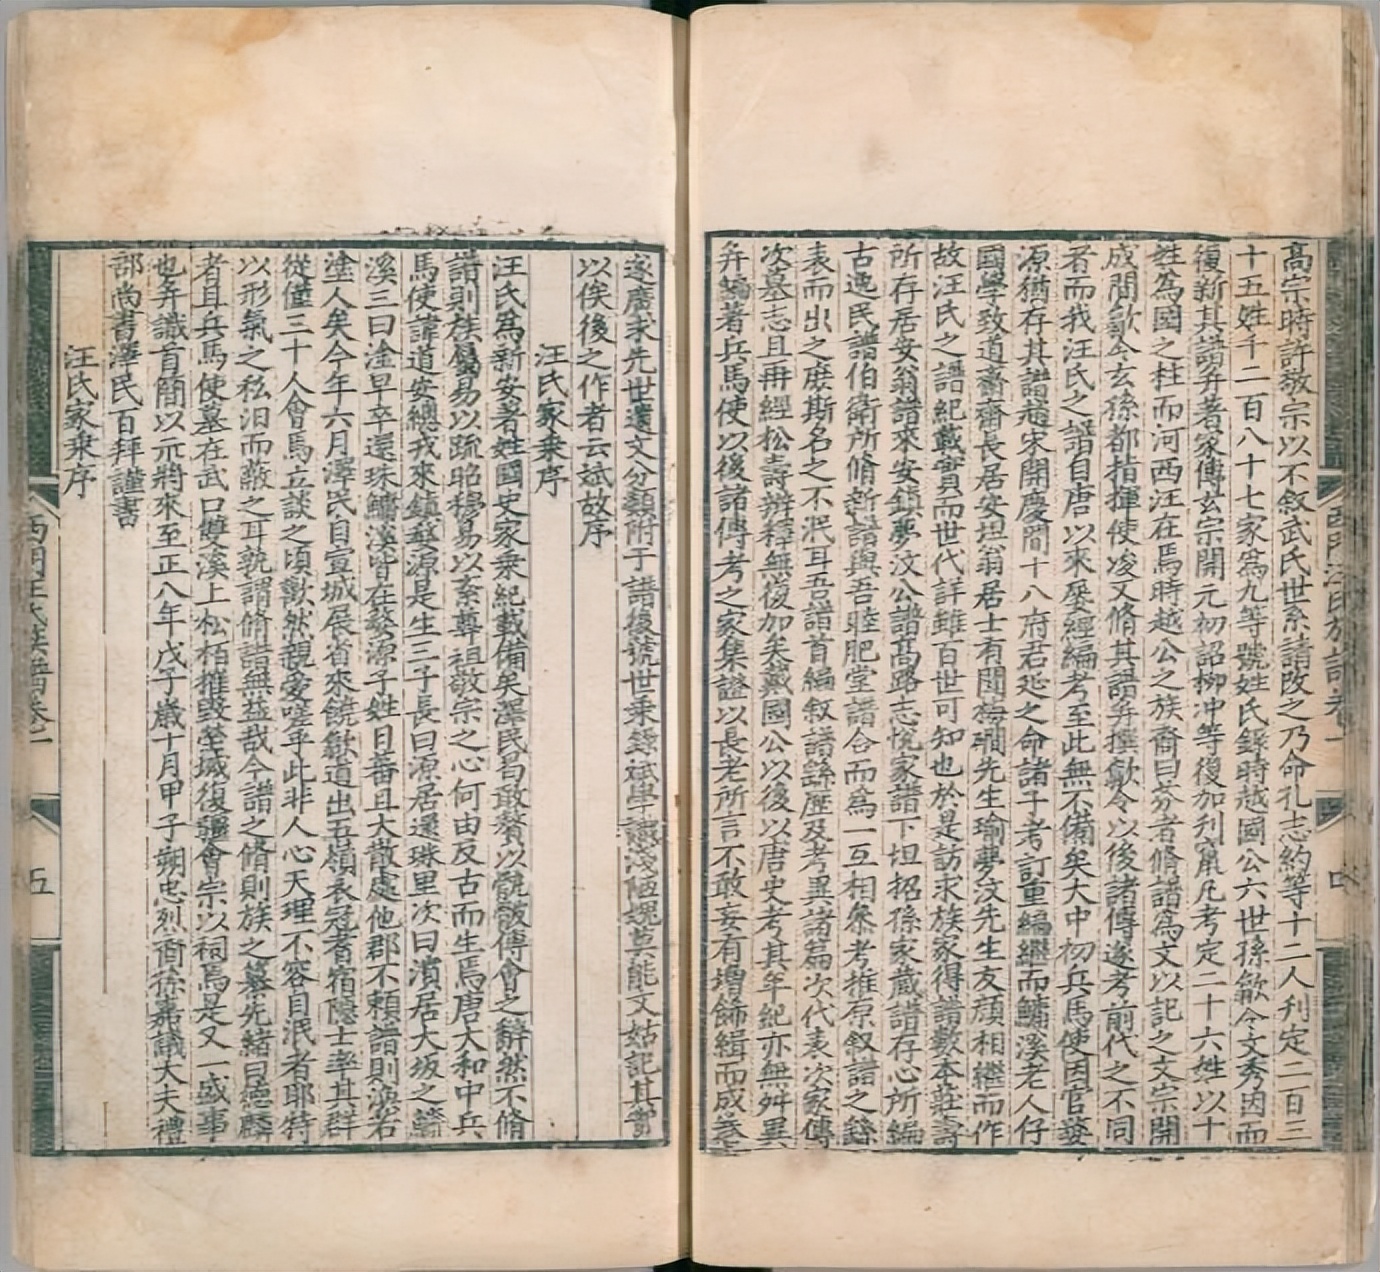 高宗時許敬宗以不敘武氏世系請改之乃命孔志約等十二人刋定二百三
十五姓千二百八十七家爲九等號姓氏錄時越國公六世孫歙令文秀因而
復新其譜弁著家傳玄宗開元初詔柳冲等復加刋竄凡考定二十六姓以十
姓爲國之柱而河西汪在焉時越公之族裔曰芬者脩譜爲文以記之文宗開
成間歙令玄孫都指揮使浚又脩其譜弁撰歙令以後諸傳遂考前代之不同
者而我汪氏之譜自唐以來屢經編考至此無不備矣大中初兵馬使因官婺
源猶存其譜趙宋開慶間十八府君延之命諸子考訂重編繼而鱅溪老人仔
國學致道齋齋長居安坦翁居士有聞梅磵先生瑜夢汶先生友顏相繼而作
故汪氏之譜紀載實而世代詳雖百世可知也於是訪求族家得譜數本莊壽
所存居安翁譜來安鎮夢汶公譜髙路志悅家譜下坦招孫家藏譜存心所編
古逸民譜伯衛所脩新譜與吾睦肥堂譜合而爲一互相叅考推原叙譜之繇
表而出之庶斯名之不泯耳吾譜首編叙譜繇歷及考異諸篇次代表次家傳
次墓志且再經松壽辨釋無復加矣戴國公以後以唐史考其年紀亦無舛異
弁編著兵馬使以後諸傳考之家集證以長老所言不敢妄有增飾緝而成卷
遂廣求先世遺文分類附于譜後號世乘錄斌學識淺陋媿莫能文姑記其實
以俟後之作者云斌故序
汪氏家乗序
汪氏爲新安著姓國史家乗紀載備矣澤民曷敢贅以骫骳傅會之辭然不脩
譜則族屬易以疏昭穆易以紊尊祖敬宗之心何由反古而生焉唐大和中兵
馬使諱道安總戎來鎮婺源是生三子長曰源居還珠里次曰濆居大坂之鱅
溪三曰淦早卒還珠鱅溪皆在婺源子姓日蕃且大散處他郡不頼譜則渙若
塗人矣今年六月澤民自宣城展省來饒歙道出五嶺衣冠耆宿隱士率其群
從僅三十人會馬立談之頃歡然親愛嗟乎此非人心天理不容自泯者耶特
以形氣之私汨而蔽之耳孰謂脩譜無益哉今譜之脩則族之墓先緒曰
者且兵馬使墓在武口雙溪上松栢摧毀塋域復疆會宗以祠焉是又一盛事
也弁識首簡以示將來至正八年戊子歲十月甲子朔忠烈裔孫嘉議大夫禮
部尚書澤民百拜謹書
汪氏家乗序
西門汪氏族譜卷一
四
西門汪氏族譜卷一
五